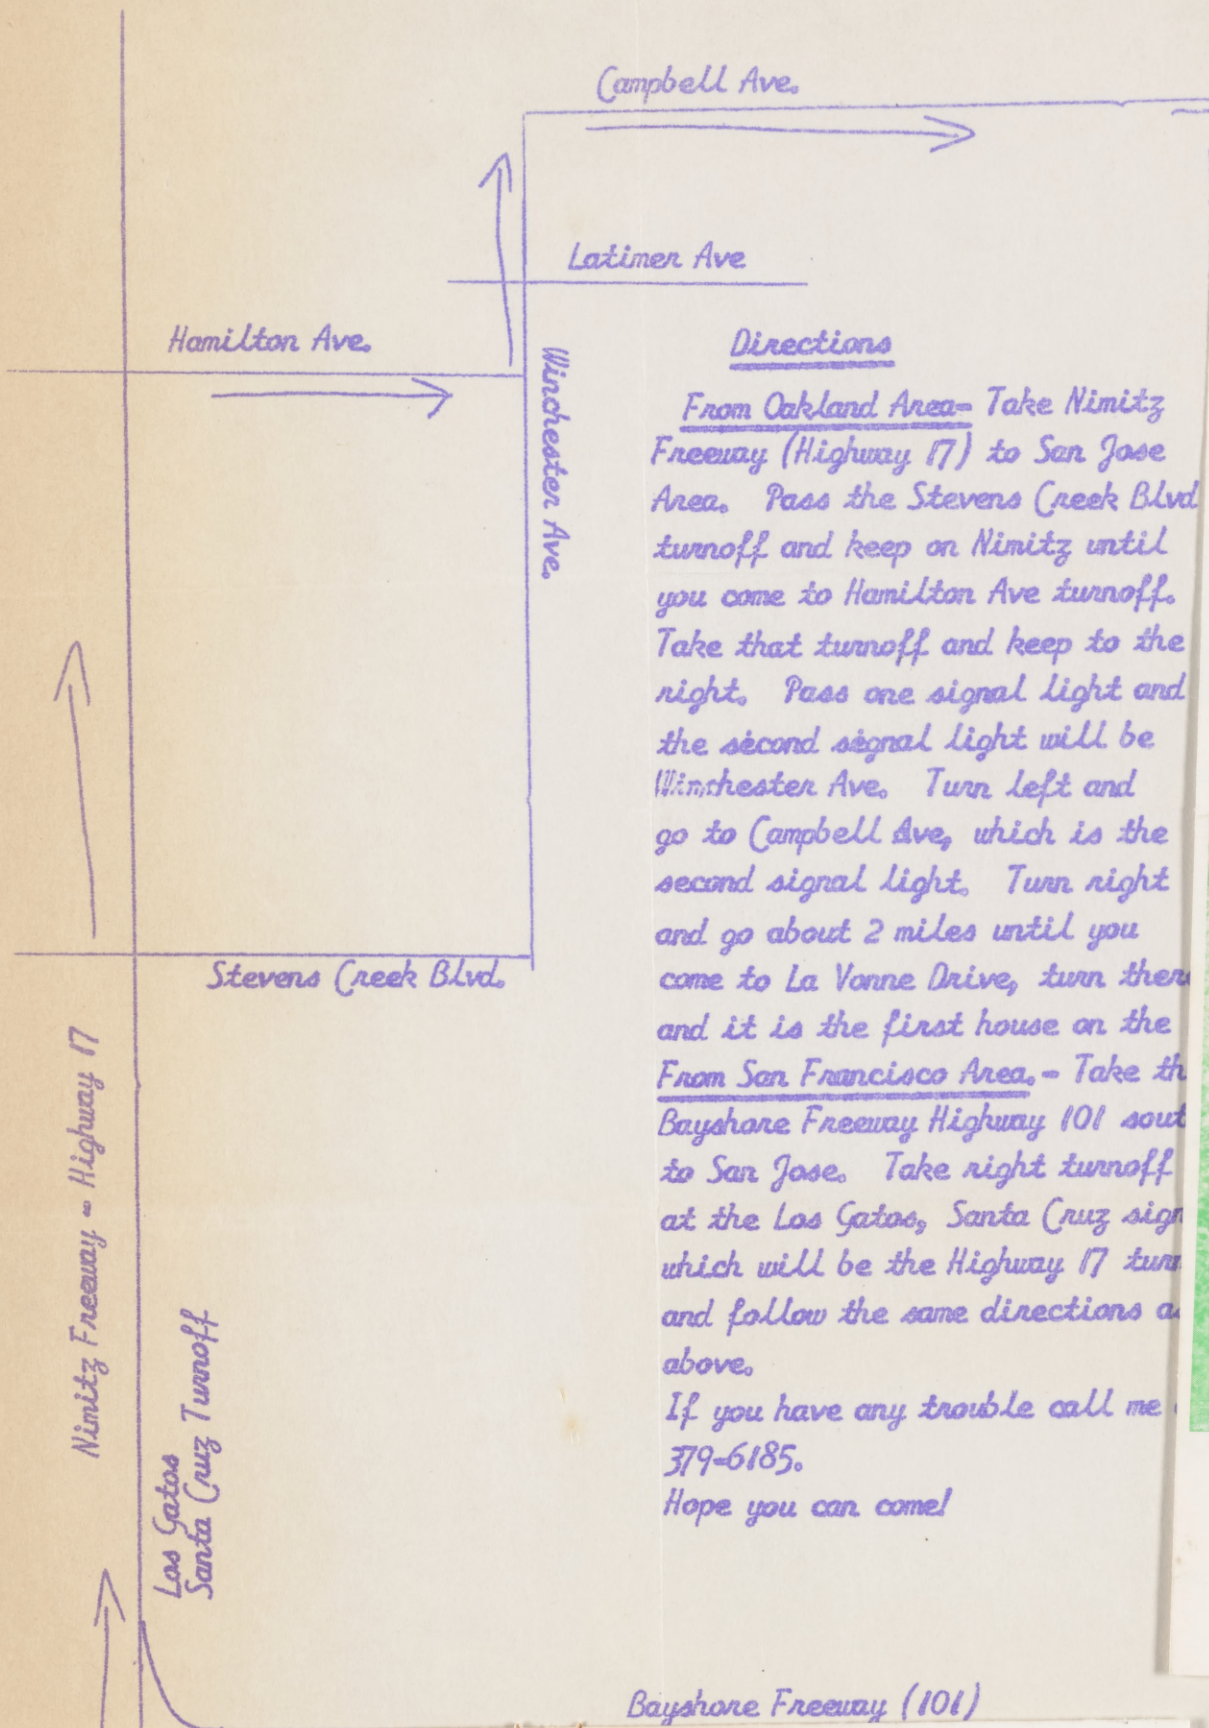 Campbell Ave.
Latimer Ave
Hamilton Ave.
Winchester Ave.
Stevens Creek Blvd.
Nimitz Freeway - Highway 17
Los Gatos
Santa Cruz Turnoff
Directions
From Oakland Area- Take Nimitz
Freeway (Highway 17) to San Jose
Area. Pass the Stevens Creek Blvd
turnoff and keep on Nimitz until
you come to Hamilton Ave turnoff.
Take that turnoff and keep to the
right. Pass one signal light and
the second signal light will be
Winchester Ave. Turn left and
go to Campbell Ave, which is the
second signal light. Turn right
and go about 2 miles until you
come to La Vonne Drive, turn
and it is the first house on the
From San Francisco Area.- Take
Bayshore Freeway Highway 101
to San Jose. Take right turnoff
at the Los Gatos, Santa Cruz sign
which will be the Highway 17
and follow the same directions
above.
If you have any trouble call me
379-6185.
Hope you can come!
Bayshore Freeway (101)